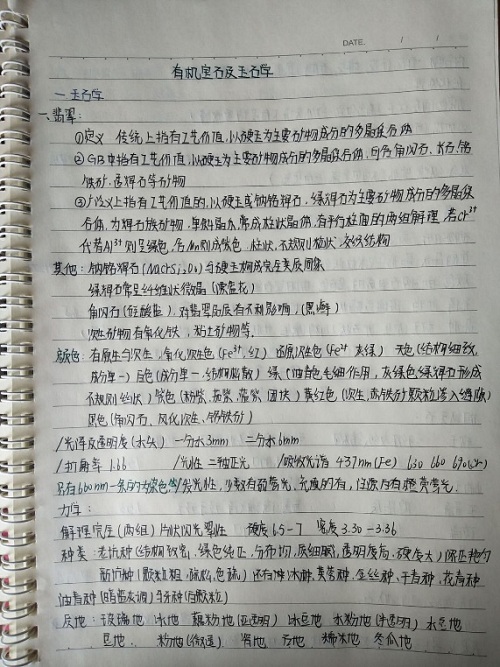 DATE. / /
有机宝石及玉石学
一 玉石学
一、翡翠:
①定义 传统上指有工艺价值,以硬玉为主要矿物成分的多晶质集合体
②GB中指有工艺价值,以硬玉为主要矿物成分的多晶集合体,可含角闪石、长石、铬
铁矿、透辉石等矿物
③广义上指有工艺价值的,以硬玉或钠铬辉石,绿辉石为主要矿物成分的多晶质
合体,为辉石族矿物,单斜晶系,常成柱状晶体,有平行柱面的两组解理,若Cr³⁺
代替Al³⁺则呈绿色,含Mn则成紫色 柱状,不规则粒状,交织结构
其他:钠铬辉石(NaCrSi₂O₆)与硬玉构成完全类质同像
绿辉石常呈纤维状微晶(飘蓝花)
角闪石(硅酸盐),对翡翠品质有不利影响,(黑癣)
次生矿物有氧化铁,粘土矿物等.
颜色:有原生与次生,氧化次生色(Fe³⁺,红) 还原次生色(Fe²⁺ 灰绿) 无色(结构细致,
成分单一)白色(成分单一,结构松散)绿( 灰绿色绿辉石形成
不规则丝状)紫色(粉紫、茄紫、蓝紫 团块)黄红色(次生,赤铁矿颗粒渗入缝隙)
黑色(角闪石、风化次生、铬铁矿)
/光泽及透明度(水头) 一分水3mm 二分水6mm
/折射率 1.66 /光性 二轴正光 /吸收光谱 437nm(Fe) 630 660 690(Cr)
另有660nm一条的为染色翠/发光性,少数有弱荧光,充填的有,
力学:
解理完全(两组)片状闪光翠性 硬度6.5-7 密度3.30-3.36
种类:老坑种(结构致密,绿色纯正,分布均,质细腻,透明度高,硬度大)
新坑种(颗粒粗,疏松,色疏)还有冰种、芙蓉种、金丝种、干青种、花青种
油青种(暗蓝灰调)马牙种(白颗粒)
质地:玻璃地 冰地 藕粉地(亚透明) 冰豆地 水粉地(半透明) 水豆地
豆地、 粉地(微透) 瓷地 石地 糯米地 冬瓜地